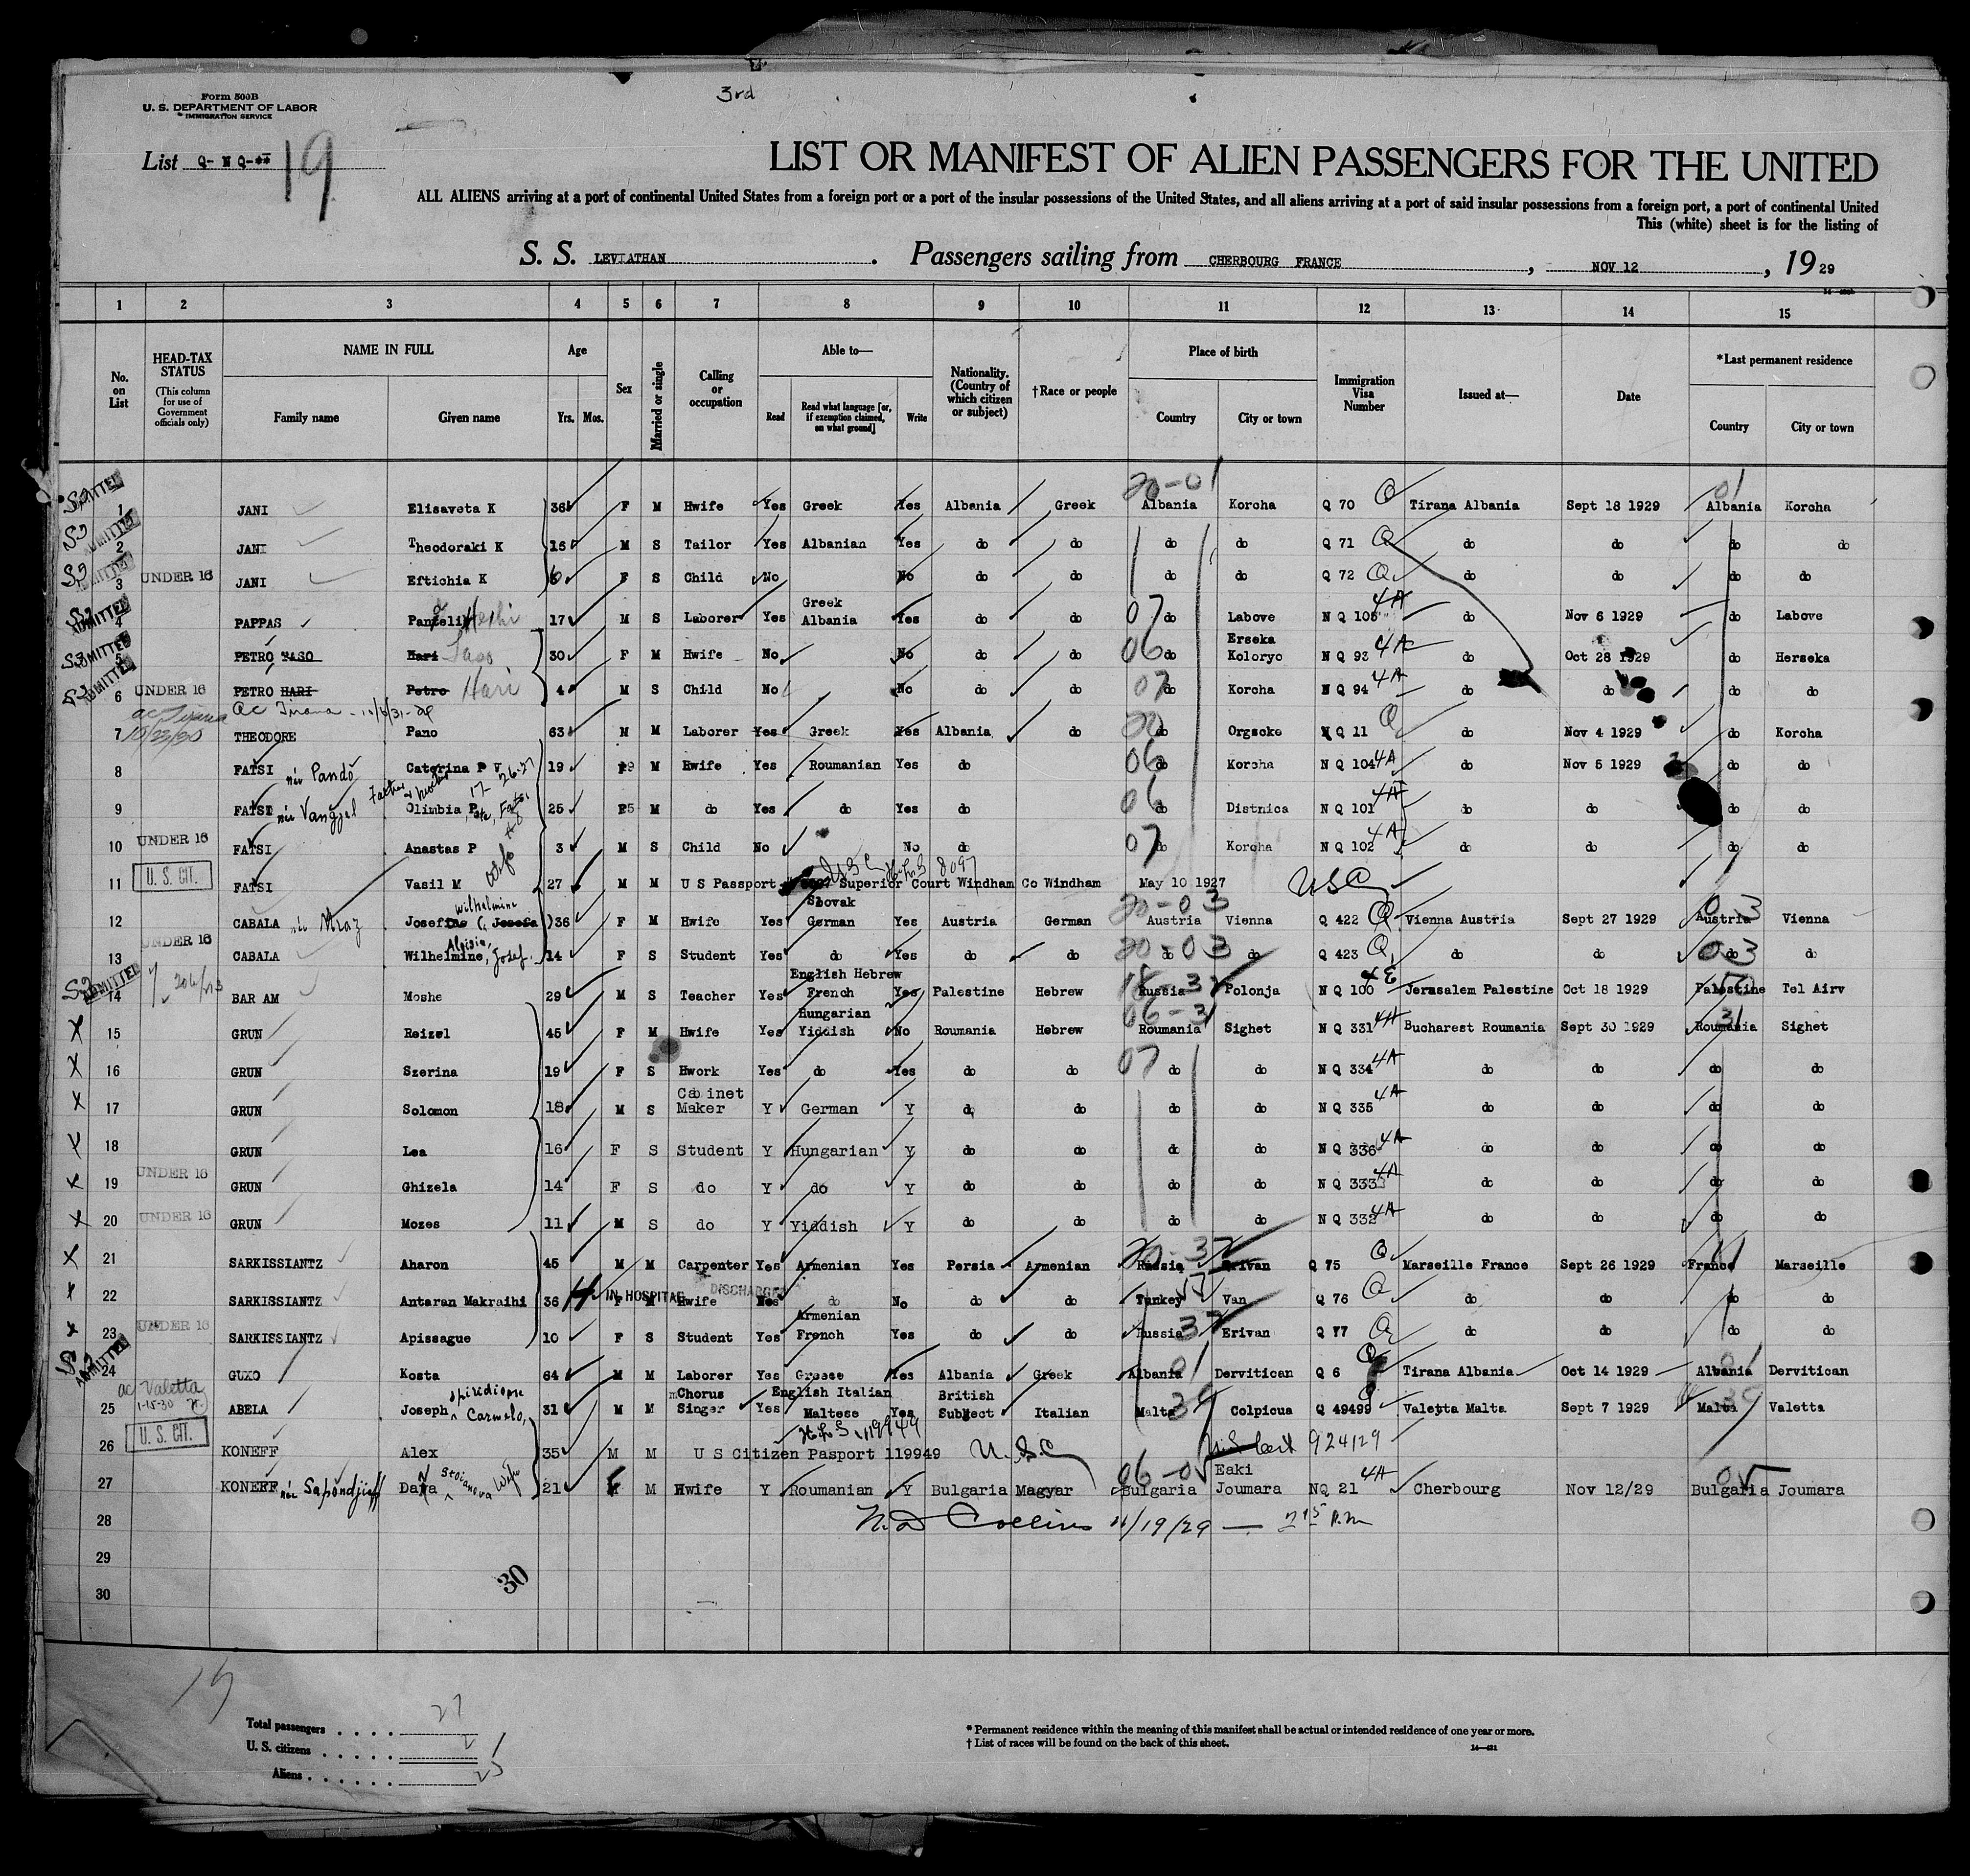 3rd
Form 500B
U. S. DEPARTMENT OF LABOR
IMMIGRATION SERVICE
List Q- N Q-** 19
LIST OR MANIFEST OF ALIEN PASSENGERS FOR THE UNITED
ALL ALIENS arriving at a port of continental United States from a foreign port or a port of the insular possessions of the United States, and all aliens arriving at a port of said insular possessions from a foreign port, a port of continental United
This (white) sheet is for the listing of
S. S. LEVIATHAN. Passengers sailing from CHERBOURG FRANCE, NOV 12, 1929
1 2 3 4 5 6 7 8 9 10 11 12 13 14 15
No. on List
HEAD-TAX STATUS
(This column for use of Government officials only)
NAME IN FULL
Family name Given name
Age
Yrs. Mos.
Sex
Married or single
Calling or occupation
Able to—
Read Read what language [or, if exemption claimed, on what ground] Write
Nationality. (Country of which citizen or subject)
†Race or people
Place of birth
Country City or town
Immigration Visa Number
Issued at—
Date
*Last permanent residence
Country City or town
ADMITTED 1 JANI Elisaveta K 36 F M Hwife Yes Greek Yes Albania Greek 20-01 Albania Korcha Q 70 Q Tirana Albania Sept 18 1929 01 Albania Korcha
ADMITTED 2 JANI Theodoraki K 16 M S Tailor Yes Albanian Yes do do do do Q 71 Q do do do do
ADMITTED 3 UNDER 16 JANI Eftichia K 6 F S Child No No do do do do Q 72 Q do do do do
ADMITTED 4 PAPPAS Panteli 17 M S Laborer Yes Greek Albania Yes do do 07 do Labove N Q 105 4A do Nov 6 1929 do Labove
ADMITTED 5 PETRO TASO Hari Taso 30 F M Hwife No No do do 06 do Erseka Koloryo N Q 93 4A do Oct 28 1929 do Herseka
ADMITTED 6 UNDER 16 PETRO HARI Petro Hari 4 M S Child No No do do 07 do Korcha N Q 94 4A do do do do
ac Tirana 10/23/30 ac Tirana - 10/8/31
7 THEODORE Pano 63 M M Laborer Yes Greek Yes Albania do do Orgsoke N Q 11 Q do Nov 4 1929 do Korcha
8 FATSI née Pando Caterina P V 19 F M Hwife Yes Roumanian Yes do 06 do Korcha N Q 104 4A do Nov 5 1929 do do
9 FATSI née Vangjel Olimbia P 25 F M do Yes do Yes do 06 do Distnica N Q 101 4A do do do do
10 UNDER 16 FATSI Anastas P 3 M S Child No No do 07 do Korcha N Q 102 4A do do do do
11 U. S. CIT. FATSI Vasil M 27 M M U S Passport Superior Court Windham Co Windham May 10 1927 USC
12 CABALA née Mraz Josefine Wilhelmine (Josefa) 36 F M Hwife Yes Slovak German Yes Austria German 20-03 Austria Vienna Q 422 Q Vienna Austria Sept 27 1929 03 Austria Vienna
13 UNDER 16 CABALA Wilhelmine, Josef. 14 F S Student Yes do Yes do do 20-03 do do Q 423 Q do do 03 do do
ADMITTED 14 BAR AM Moshe 29 M S Teacher Yes English Hebrew French Yes Palestine Hebrew Russia Polonja N Q 100 4E Jerusalem Palestine Oct 18 1929 Palestine Tel Airv
X 15 GRUN Reizel 45 F M Hwife Yes Hungarian Yiddish No Roumania Hebrew 06-31 Roumania Sighet N Q 331 4A Bucharest Roumania Sept 30 1929 31 Roumania Sighet
X 16 GRUN Szerina 19 F S Hwork Yes do Yes do do 07 do do N Q 334 4A do do do do
X 17 GRUN Solomon 18 M S Cabinet Maker Y German Y do do do do N Q 335 4A do do do do
X 18 GRUN Lea 16 F S Student Y Hungarian Y do do do do N Q 336 4A do do do do
X 19 UNDER 16 GRUN Ghizela 14 F S do Y do Y do do do do N Q 333 4A do do do do
X 20 UNDER 16 GRUN Mozes 11 M S do Y Yiddish Y do do do do N Q 332 4A do do do do
X 21 SARKISSIANTZ Aharon 45 M M Carpenter Yes Armenian Yes Persia Armenian 20-37 Russia Erivan Q 75 Q Marseille France Sept 26 1929 France Marseille
X 22 SARKISSIANTZ Antaran Makraihi 36 H IN HOSPITAL DISCHARGED F M Hwife do No do do Turkey Van Q 76 Q do do do do
X 23 UNDER 16 SARKISSIANTZ Apissague 10 F S Student Yes Armenian French Yes do do Russia 37 Erivan Q 77 Q do do do do
ADMITTED 24 GUXO Kosta 64 M M Laborer Yes Greese Yes Albania Greek 01 Albania Dervitican Q 6 Q Tirana Albania Oct 14 1929 01 Albania Dervitican
ac Valetta 1-15-30
25 ABELA Joseph Spiridione Carmelo, 31 M M Chorus Singer Yes English Italian Maltese Yes British Subject Italian Malta Colpicua Q 49499 Q Valetta Malta Sept 7 1929 Malta Valetta
26 U. S. CIT. KONEFF Alex 35 M M U S Citizen Pasport 119949 U.S.C. 924129
27 KONEFF née Sapondjieff Dara Stoianova Wife 21 M Hwife Y Roumanian Y Bulgaria Magyar 06-05 Bulgaria Eaki Joumara NQ 21 4A Cherbourg Nov 12/29 05 Bulgaria Joumara
28 N.D Collins 11/19/29 — 7 15 P.m
29
30
30
19
Total passengers . . . . 27
U. S. citizens . . . . . 2
Aliens . . . . . . 25
* Permanent residence within the meaning of this manifest shall be actual or intended residence of one year or more.
† List of races will be found on the back of this sheet.
14—421